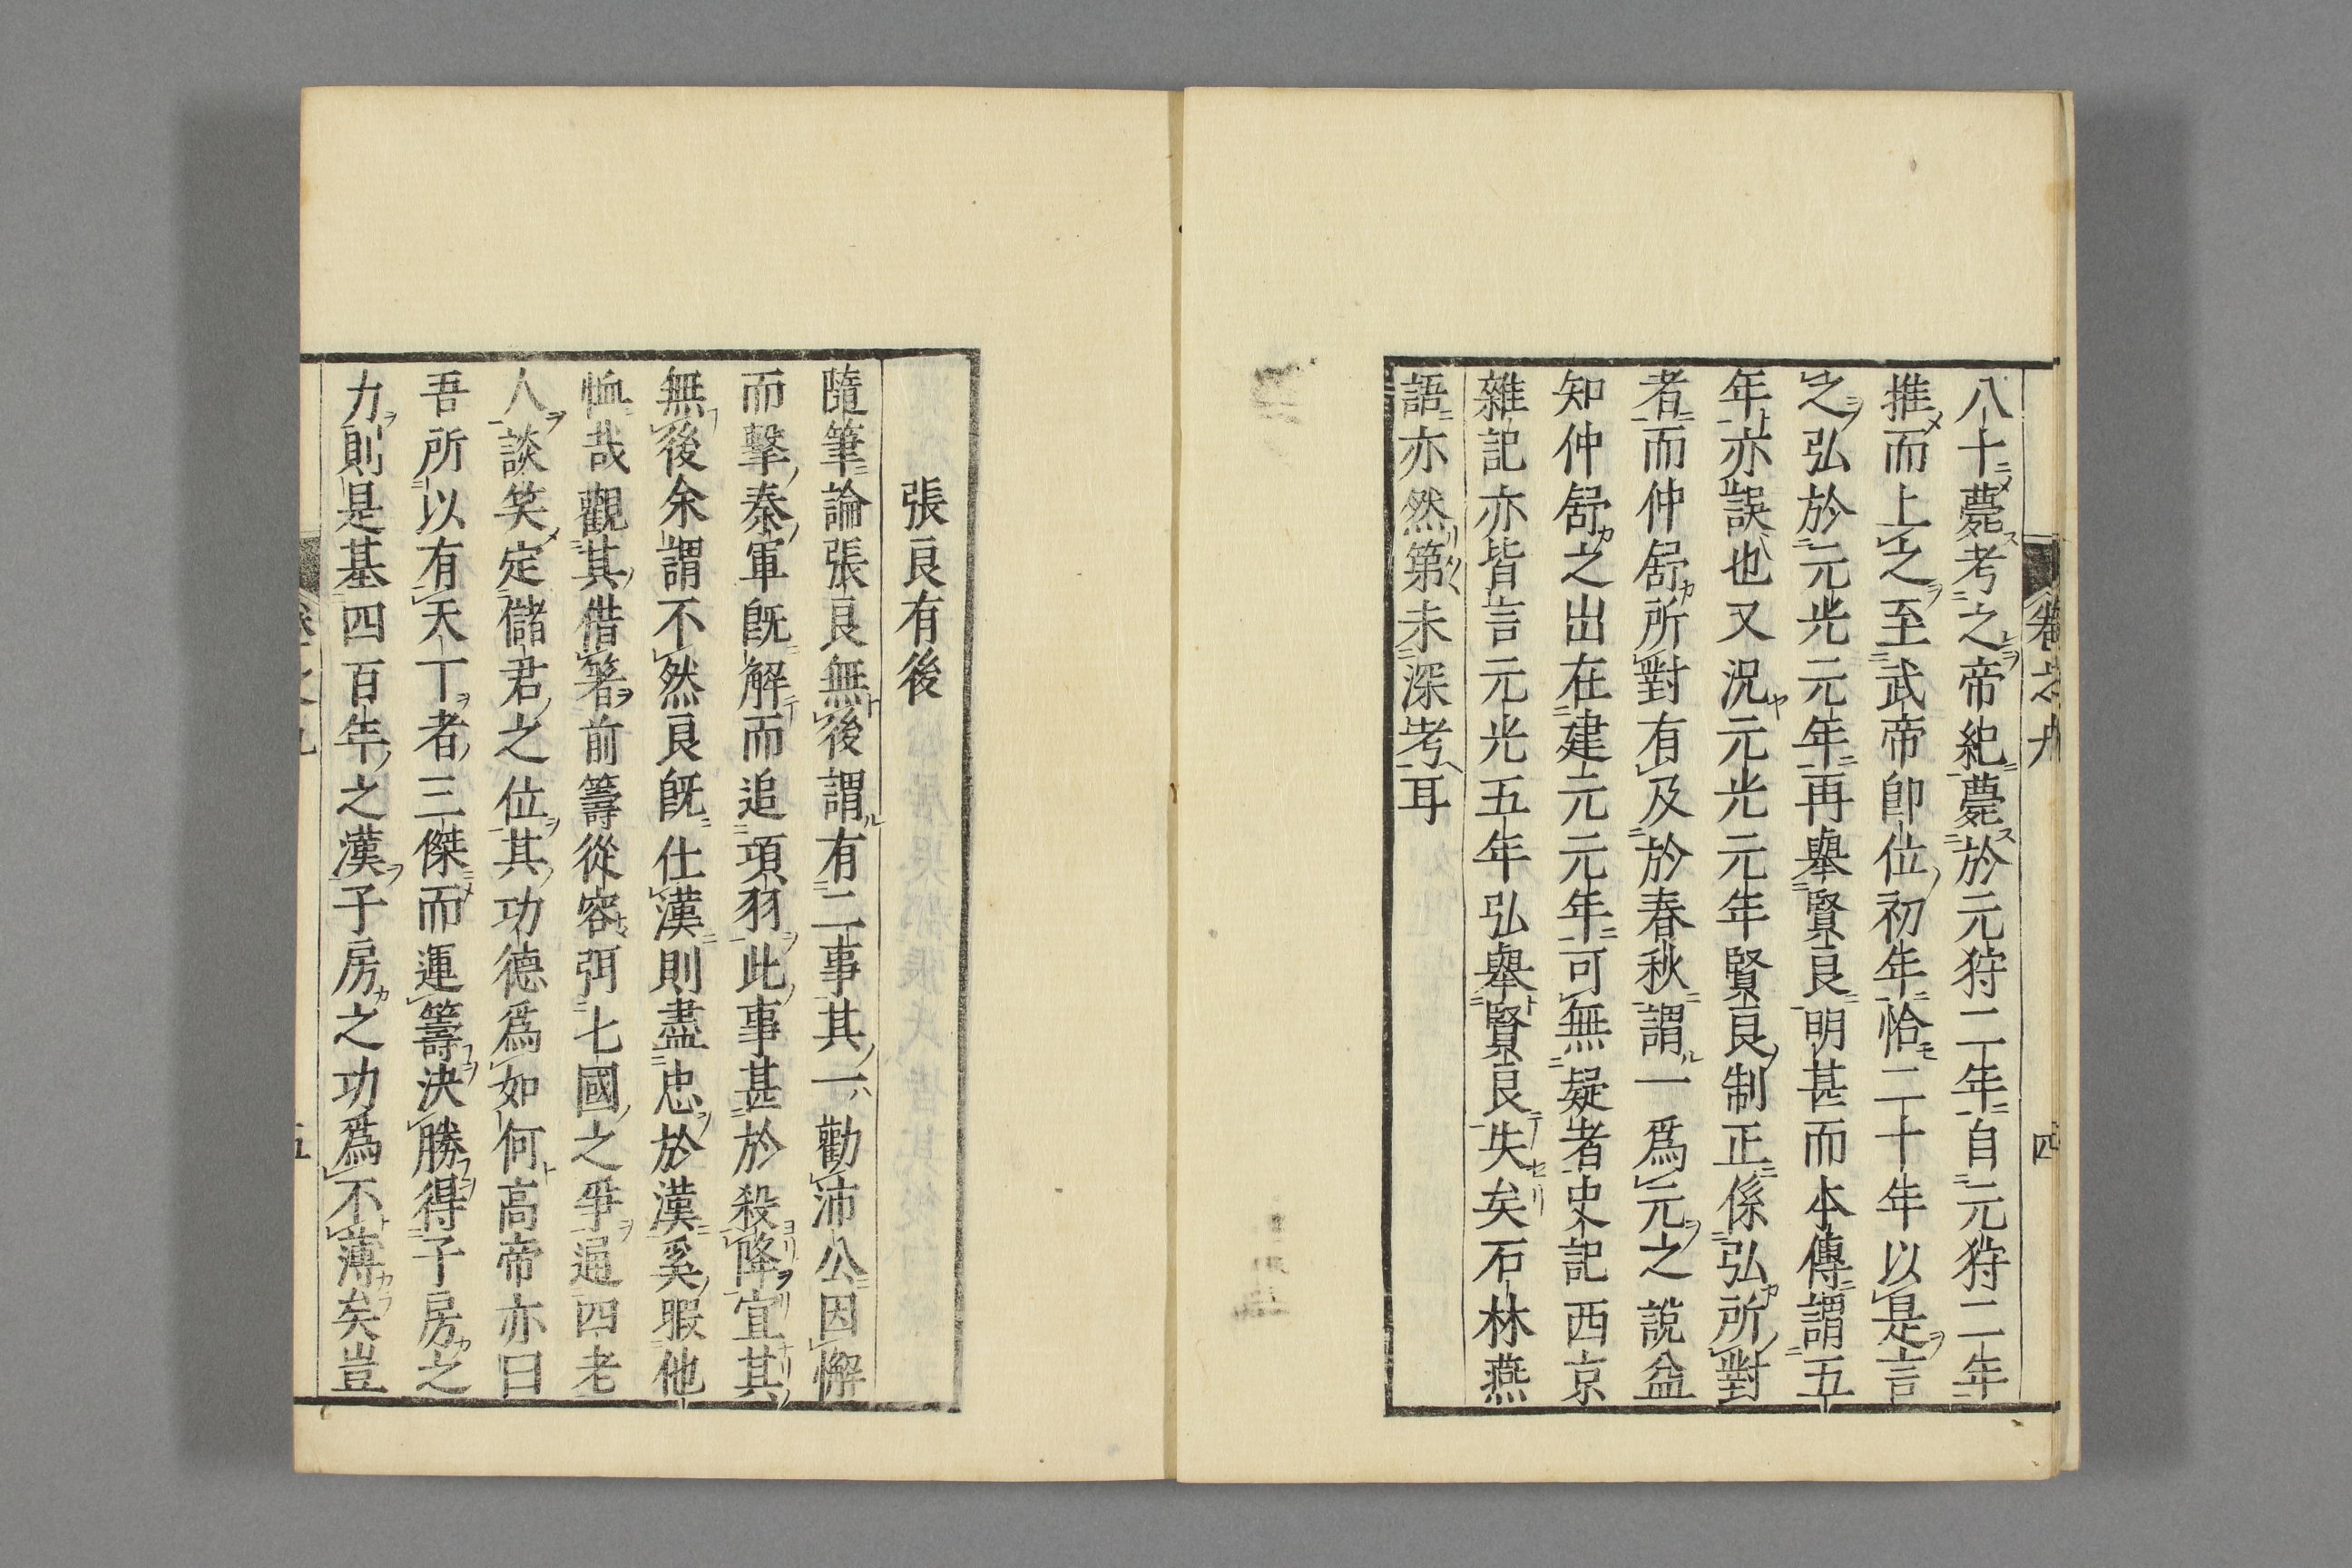 卷之九 四
八十薨考之帝紀薨於元狩二年自元狩二年
推而上之至武帝卽位初年恰二十年以是言
之弘於元光元年再擧賢良明甚而本傳謂五
年亦誤也又況元光元年賢良制正係弘所對
者而仲舒所對有及於春秋謂一爲元之說益
知仲舒之出在建元元年可無疑者史記西京
雜記亦皆言元光五年弘擧賢良失矣石林燕
語亦然第未深考耳
張良有後
隨筆論張良無後謂有二事其一勸沛公因懈
而擊秦軍旣解而追項羽此事甚於殺降宜其
無後余謂不然良旣仕漢則盡忠於漢奚暇他
恤哉觀其借箸前籌從容弭七國之爭逼四老
人談笑定儲君之位其功德爲如何高帝亦曰
吾所以有天丁者三傑而運籌決勝得子房之
力則是基四百年之漢子房之功爲不薄矣豈
五